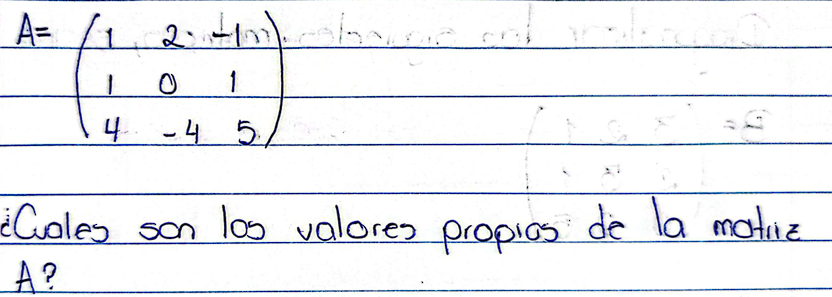 A= ( 1 2 -1 )
1 0 1
4 -4 5
¿Cuales son los valores propios de la matriz
A?